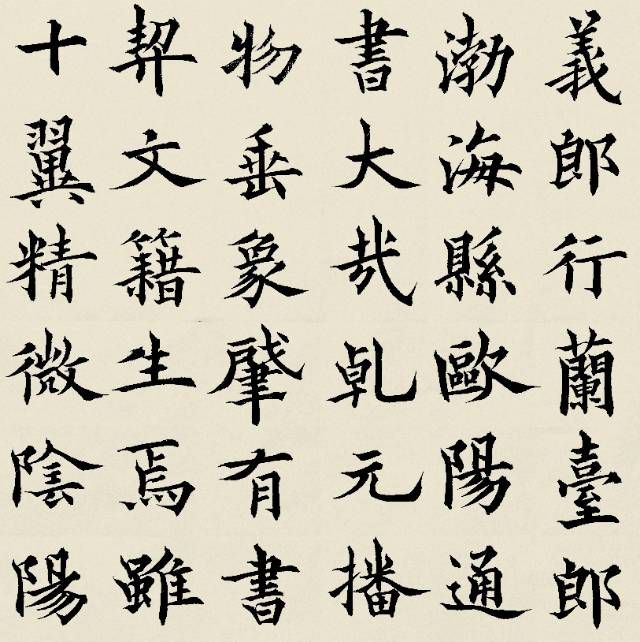 義郎行蘭臺郎
渤海縣歐陽通
書大㢤乹元播
物垂象肇有書
契文籍生焉雖
十翼精微陰陽